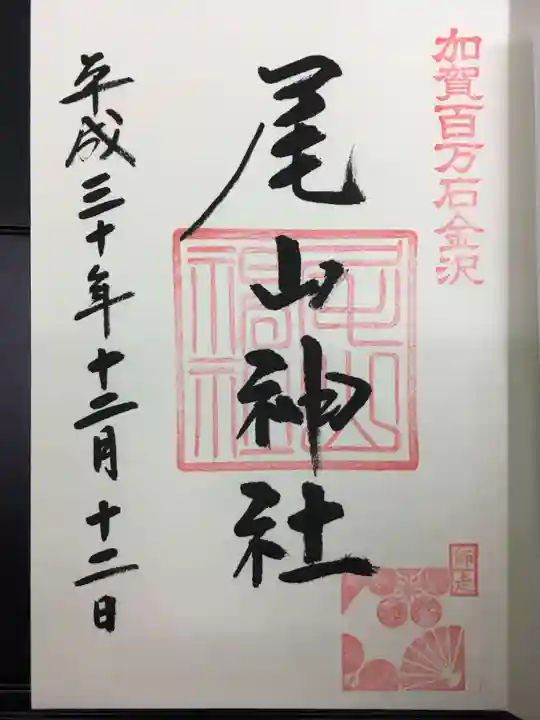 加賀百万石金沢
尾山神社
師走
平成三十年十二月十二日